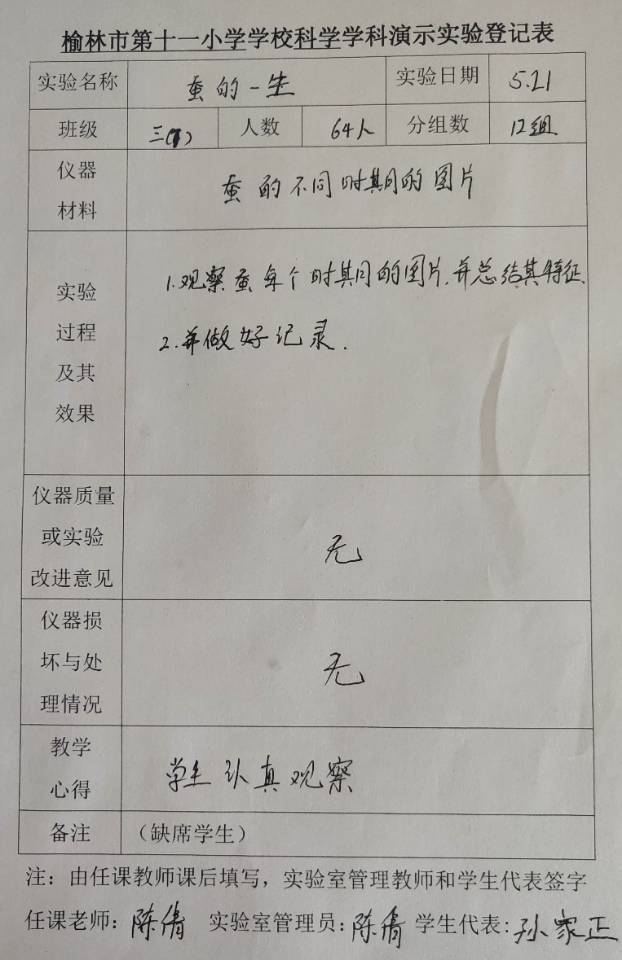 榆林市第十一小学学校科学学科演示实验登记表
实验名称 蚕的一生 实验日期 5.21
班级 三( ) 人数 64人 分组数 12组
仪器材料 蚕的不同时期的图片
实验过程及其效果 1.观察蚕每个时期的图片,并总结其特征.
2.并做好记录.
仪器质量或实验改进意见 无
仪器损坏与处理情况 无
教学心得 学生认真观察
备注 (缺席学生)
注:由任课教师课后填写,实验室管理教师和学生代表签字
任课老师:陈倩 实验室管理员:陈倩 学生代表:孙家正